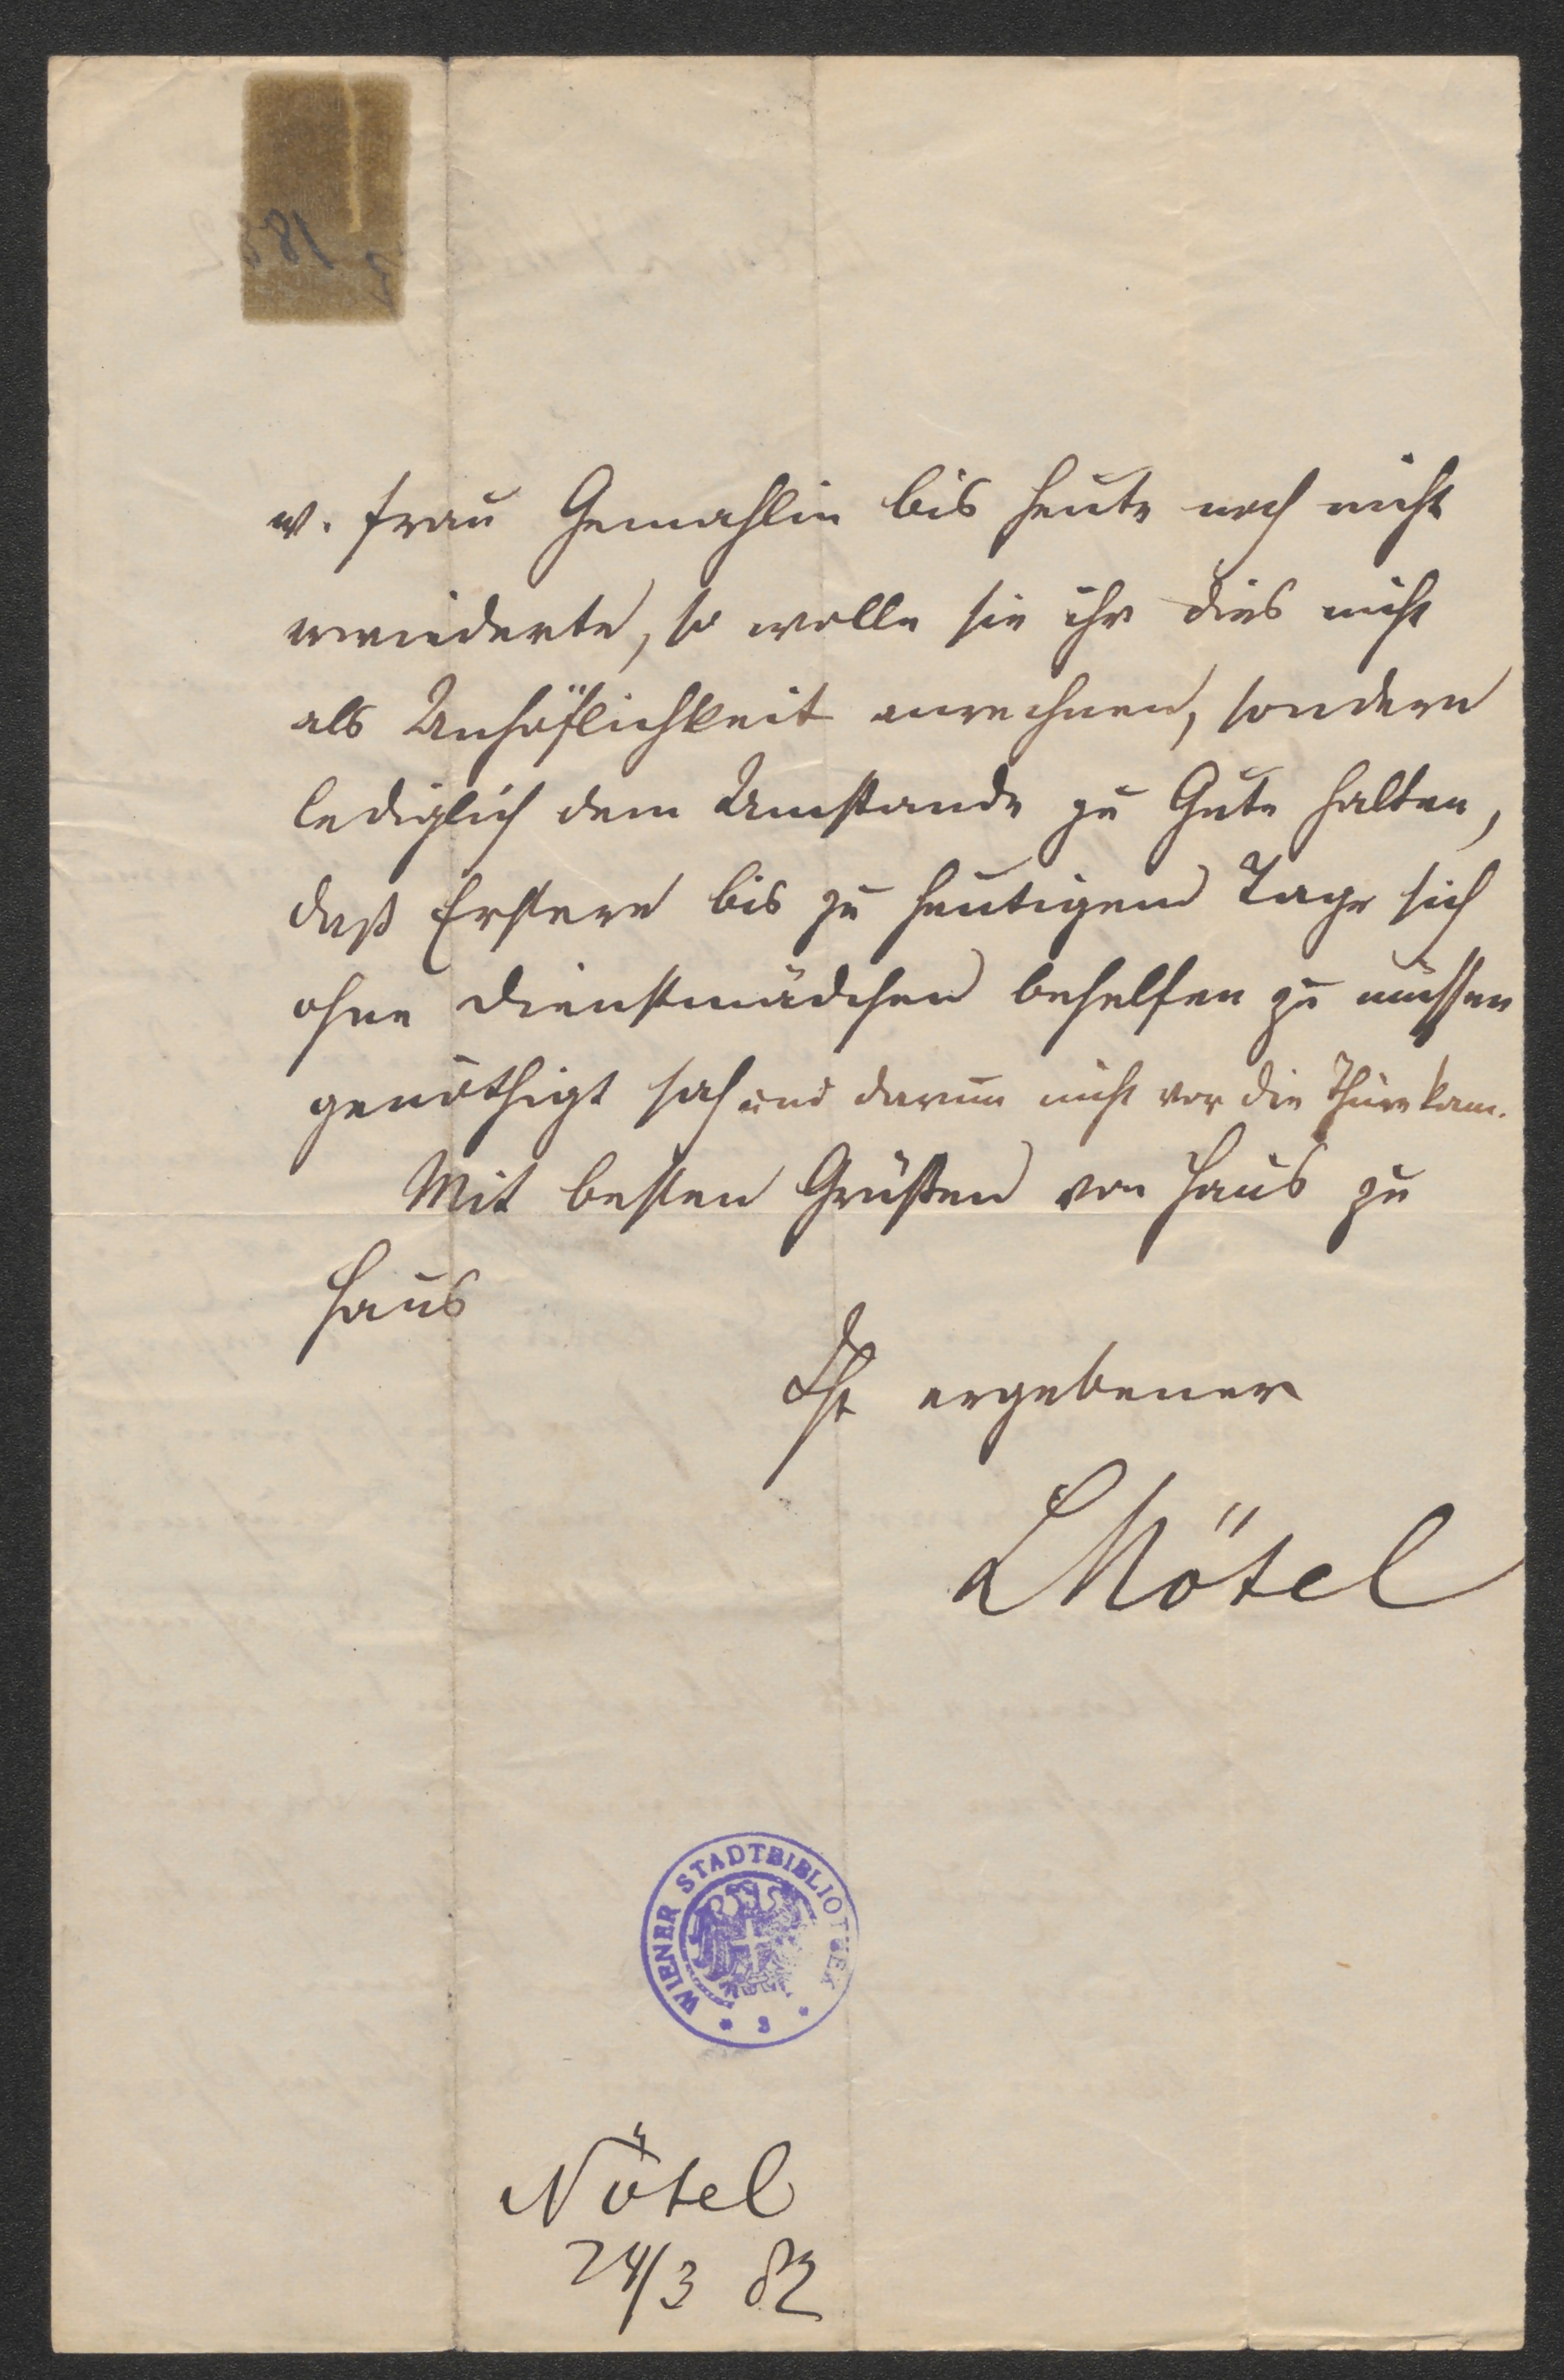 w. Frau Gemahlin bis heute noch nicht
erwiederte, so wolle sie ihr dies nicht
als Unhöflichkeit anrechnen, sondern
lediglich dem Umstande zu Gute halten,
daß Erstere bis zu heutigem Tage sich
ohne Dienstmädchen behelfen zu müssen
genöthigt sah und darum nicht vor die Thüre kam.
Mit besten Grüßen von Haus zu
Haus
Ihr ergebener
LNötel
WIENER STADTBIBLIOTHEK
* 3 *
Nötel
24/3 82